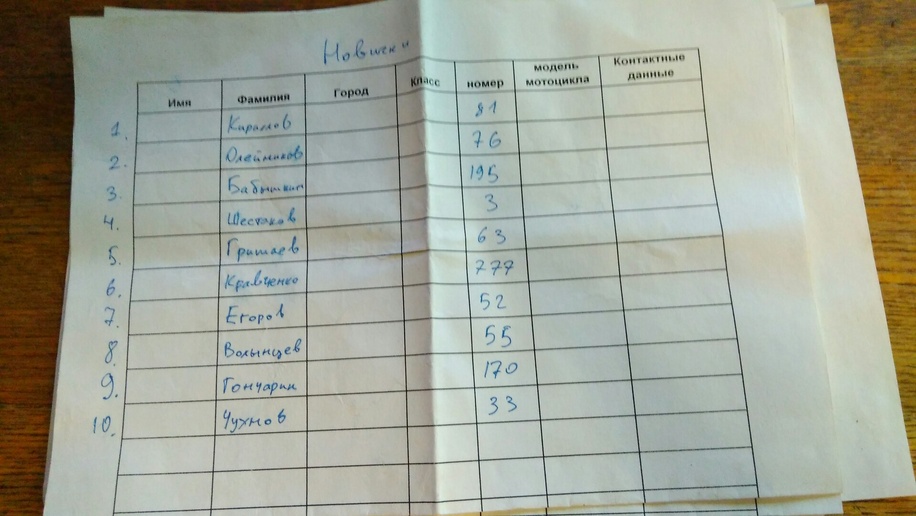 Новички
Имя Фамилия Город Класс номер модель мотоцикла Контактные данные
1. 81
2. Олейников 76
3. Бабушкин 195
4. Шестаков 3
5. Гришаев 63
6. Кравченко 777
7. Егоров 52
8. Волынцев 55
9. Гончарин 170
10. Чухнов 33